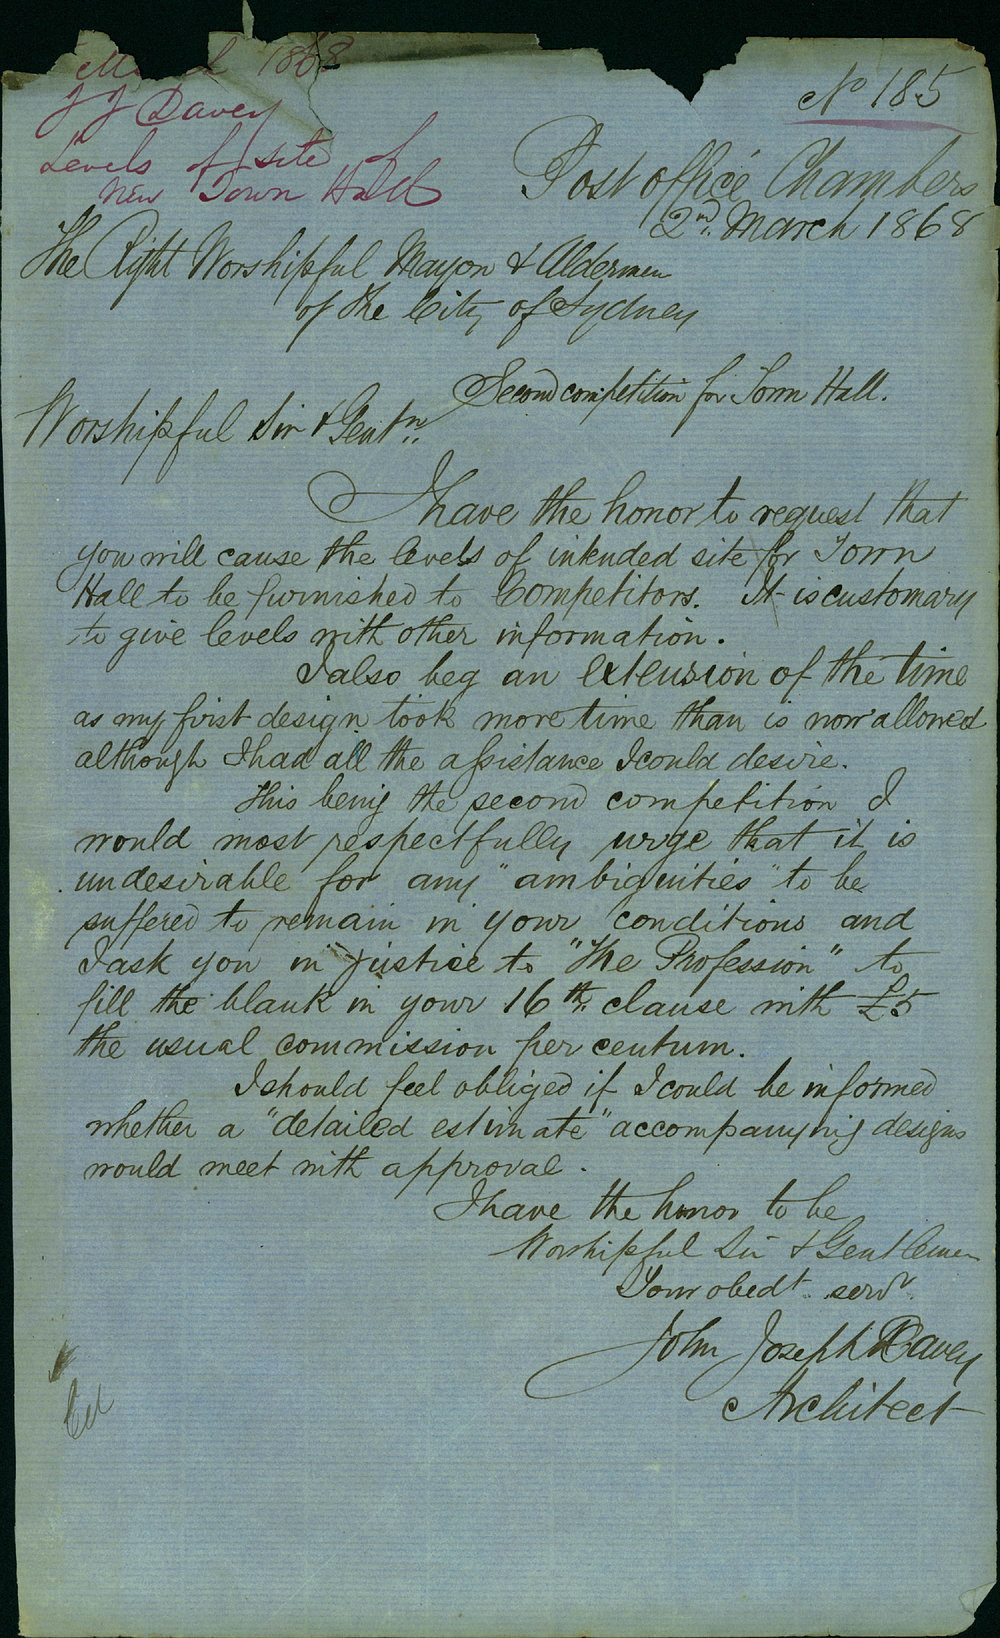 March 1868
J J Davey
Levels of site of
New Town Hall
No 185
Post office Chambers
2nd. March 1868
The Right Worshipful Mayor & Aldermen
of the City of Sydney
Second competition for Town Hall.
Worshipful Sir & Gentn.
I have the honor to request that
you will cause the levels of intended site for Town
Hall to be furnished to Competitors. It is customary
to give levels with other information.
I also beg an extension of the time
as my first design took more time than is now allowed
although I had all the assistance I could desire.
This being the second competition I
would most respectfully urge that it is
undesirable for any "ambiguities" to be
suffered to remain in your conditions and
I ask you in justice to "The Profession" to
fill the blank in your 16th. clause with £5
the usual commission per centum.
I should feel obliged if I could be informed
whether a "detailed estimate" accompanying designs
would meet with approval.
I have the honor to be
Worshipful Sir & Gentlemen
Your obedt. servt.
John Joseph Davey
Architect